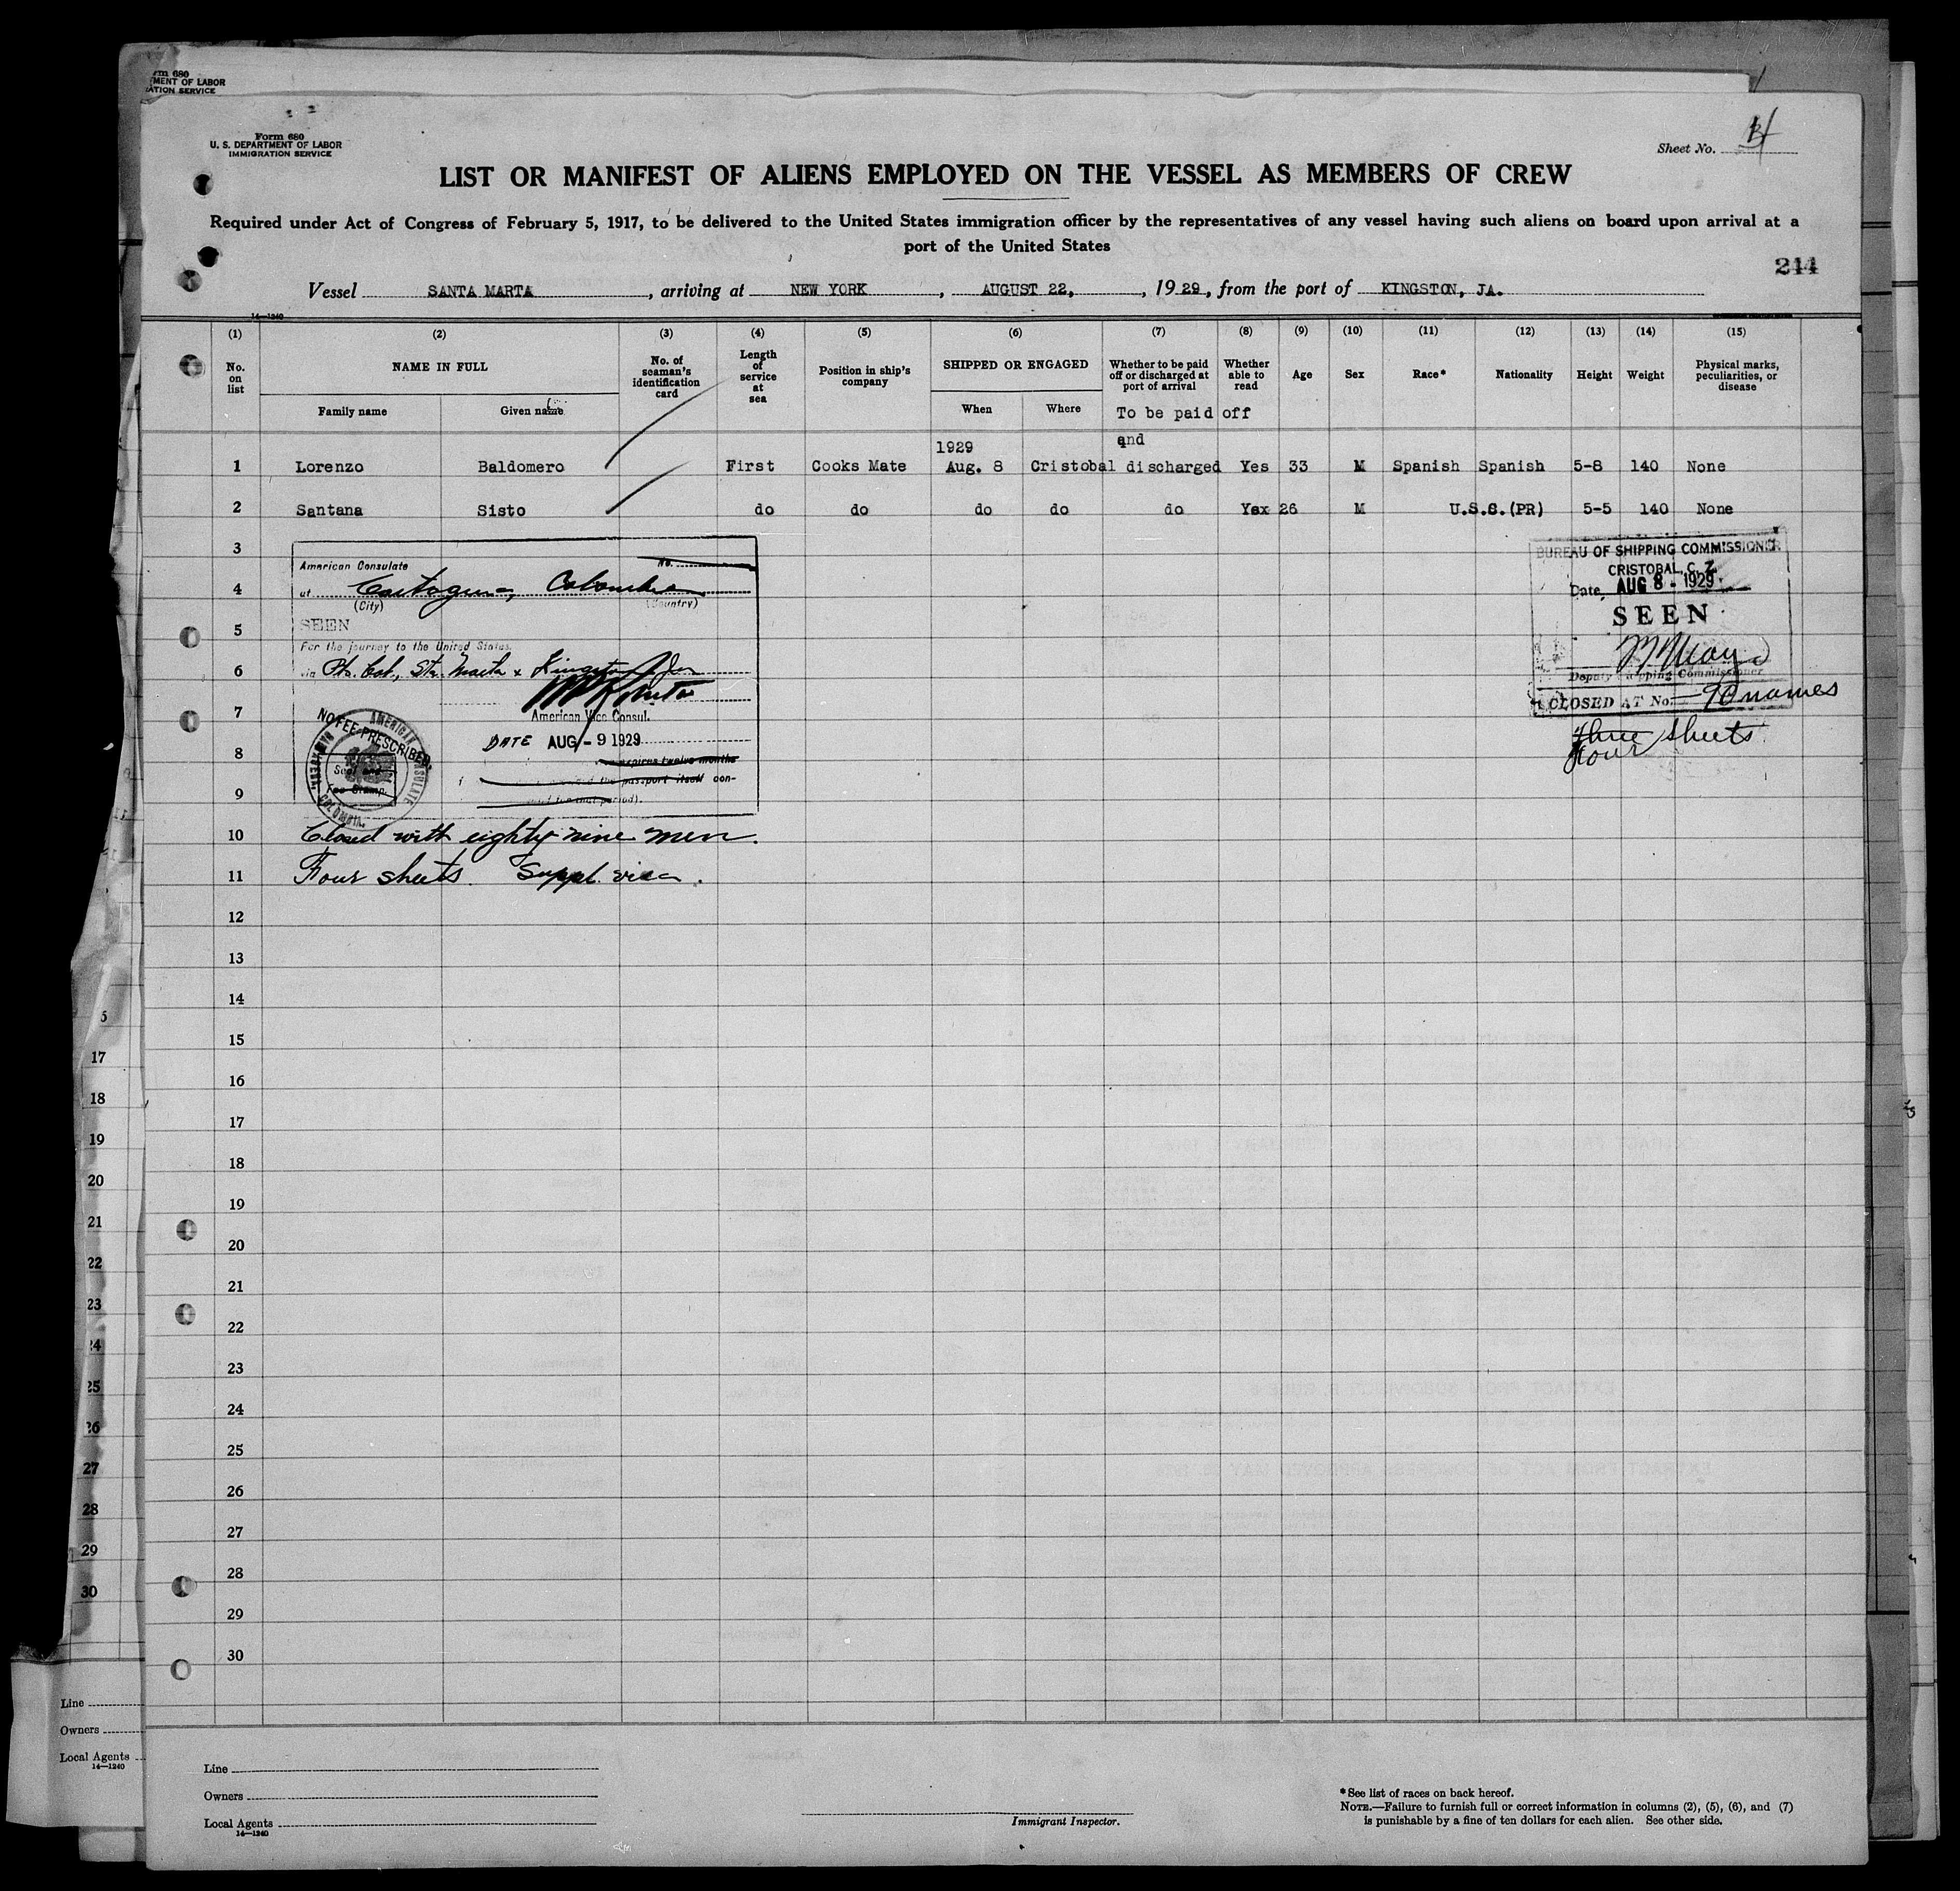 rm 680
MENT OF LABOR
ATION SERVICE
Form 680
U. S. DEPARTMENT OF LABOR
IMMIGRATION SERVICE
Sheet No. 4
LIST OR MANIFEST OF ALIENS EMPLOYED ON THE VESSEL AS MEMBERS OF CREW
Required under Act of Congress of February 5, 1917, to be delivered to the United States immigration officer by the representatives of any vessel having such aliens on board upon arrival at a
port of the United States
244
Vessel SANTA MARTA, arriving at NEW YORK, AUGUST 22, 1929, from the port of KINGSTON, JA.
14—1240
(1) (2) (3) (4) (5) (6) (7) (8) (9) (10) (11) (12) (13) (14) (15)
No. on list
NAME IN FULL
Family name Given name
No. of seaman's identification card
Length of service at sea
Position in ship's company
SHIPPED OR ENGAGED
When Where
Whether to be paid off or discharged at port of arrival
Whether able to read
Age Sex Race* Nationality Height Weight
Physical marks, peculiarities, or disease
To be paid off
1929 and
1 Lorenzo Baldomero First Cooks Mate Aug. 8 Cristobal discharged Yes 33 M Spanish Spanish 5-8 140 None
2 Santana Sisto do do do do do Yes 26 M U.S.C.(PR) 5-5 140 None
3
4
5
6
7
8
9
10
11
12
13
14
15
16
17
18
19
20
21
22
23
24
25
26
27
28
29
30
American Consulate No.
at Cartagena, Colombia
(City) (Country)
SEEN
For the journey to the United States.
via Pto. Col., Sta. Marta & Kingston Ja
American Vice Consul.
DATE AUG - 9 1929
expires twelve months
the passport itself con-
period).
NO FEE PRESCRIBED
AMERICAN CONSULATE
COLOMBIA
Seal and
Fee Stamp.
Closed with eighty nine men.
Four sheets. Suppl. visa.
BUREAU OF SHIPPING COMMISSIONER
CRISTOBAL, C. Z.
Date, AUG 8 - 1929
SEEN
Deputy Shipping Commissioner
CLOSED AT No. 90 names
three sheets
Four
5
17
18
19
20
21
22
23
24
25
26
27
28
29
30
Line
Owners
Local Agents
14—1240
Line
Owners
Local Agents
14—1240
Immigrant Inspector.
*See list of races on back hereof.
NOTE.—Failure to furnish full or correct information in columns (2), (5), (6), and (7)
is punishable by a fine of ten dollars for each alien. See other side.